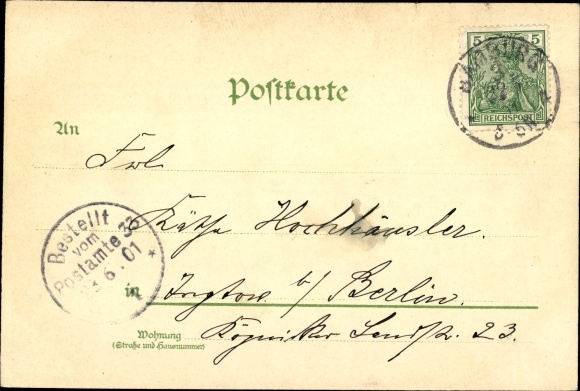 5 5
REICHSPOST
HARBURG
Postkarte
An
Frl.
Käthe Hochhäusler.
Bestellt
vom
Postamte 33
6.01
in Treptow b/ Berlin.
Wohnung
(Straße und Hausnummer)
Köpniker Landstr. 23.